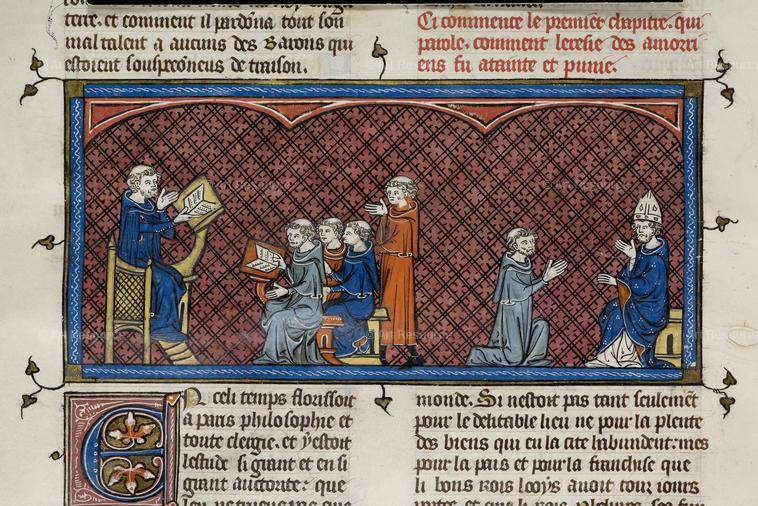 terre. et comment il pardona tout son
mal talent a aucuns des Barons qui
estoient souspeconeus de traison.
Ci commence le premier chapitre. qui
parole. comment leresie des amorri
ens fu atainte et punie.
En celi temps florissoit
a paris philosophie et
toute clergie. et y estoit
lestude si grant et en si
grant auctorite: que
monde. Si nestoit pas tant seulement
pour le delitable lieu ne pour la plente
des biens qui en la cite habundent: mes
pour la pais et pour la franchise que
li bons Rois looys auoit touz iours